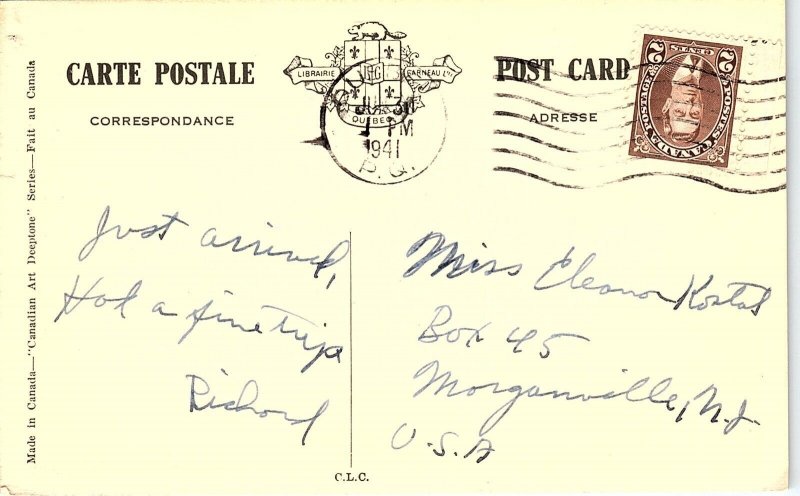 CARTE POSTALE
CORRESPONDANCE
LIBRAIRIE GARNEAU Ltée
QUEBEC
30
1 PM
1941
P.Q.
POST CARD
ADRESSE
2 CENTS 2
POSTES CANADA POSTAGE
Made in Canada—"Canadian Art Deeptone" Series—Fait au Canada
Just arrived,
Had a fine trip
Richard
Miss Eleanor Kostal
Box 45
Morganville, N.J.
U.S.A
C.L.C.